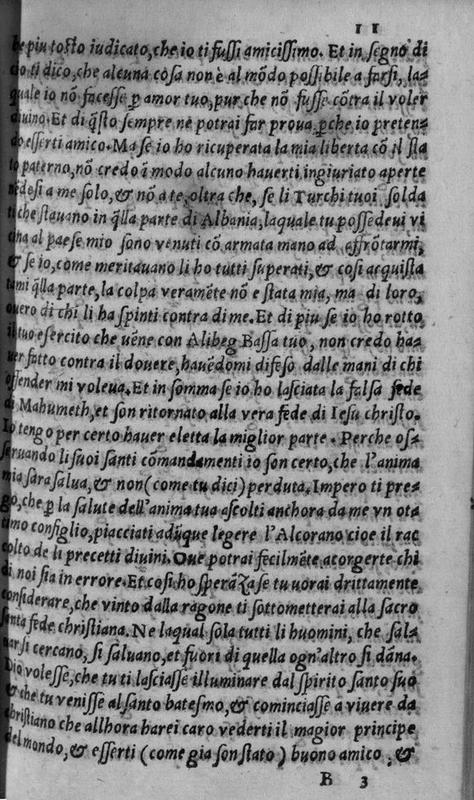 11
be piu tosto iudicato, che io ti fussi amicissimo. Et in segno di
cio ti dico, che alcuna cosa non è al mõdo possibile a farsi, la=
quale io nõ facesse ꝑ amor tuo, pur che nõ fusse cõtra il voler
diuino. Et di q̃sto sempre ne potrai far proua, ꝑche io preten=
do esserti amico. Ma se io ho ricuperata la mia liberta cõ il sta
to paterno, nõ credo ĩ modo alcuno hauerti, ingiuriato aperte
nẽdosi a me solo, & nõ a te, oltra che, se li Turchi tuoi solda
ti che stauano in q̃lla parte di Albania, laquale tu possedeui vi
cina al paese mio sono venuti cõ armata mano ad affrõtarmi,
& se io, come meritauano li ho tutti superati, & cosi acquista
tami q̃lla parte, la colpa veramẽte nõ e stata mia, ma di loro,
ouero di chi li ha spinti contra di me. Et di piu se io ho rotto
il tuo esercito che uẽne con Alibeg Bassa tuo, non credo ha=
uer fatto contra il douere, hauẽdomi difeso dalle mani di chi
offender mi voleua. Et in somma se io ho lasciata la falsa fede
di Mahumeth, et son ritornato alla vera fede di Iesu christo.
Io tengo per certo hauer eletta la miglior parte. Perche os=
seruando li suoi santi comandamenti io son certo, che l'anima
mia sara salua, & non (come tu dici) perduta. Impero ti pre=
go, che ꝑ la salute dell'anima tua ascolti anchora da me vn ot
timo consiglio, piacciati adũque legere l'Alcorano cioe il rac
colto de li precetti diuini. Oue potrai fecilmẽte acorgerte chi
di noi sia in errore. Et cosi ho sperãza se tu uorai drittamente
considerare, che vinto dalla ragone ti sottometterai alla sacro
santa fede christiana. Ne laqual sola tutti li huomini, che sal=
uarsi cercano, si saluano, et fuori di quella ogn'altro si dãna.
Dio volesse, che tu ti lasciasse illuminare dal spirito santo suo
& che tu venisse al santo batesmo, & cominciasse a viuere da
christiano che allhora harei caro vederti il magior principe
del mondo, & esserti (come gia son stato) buono amico, &
B 3